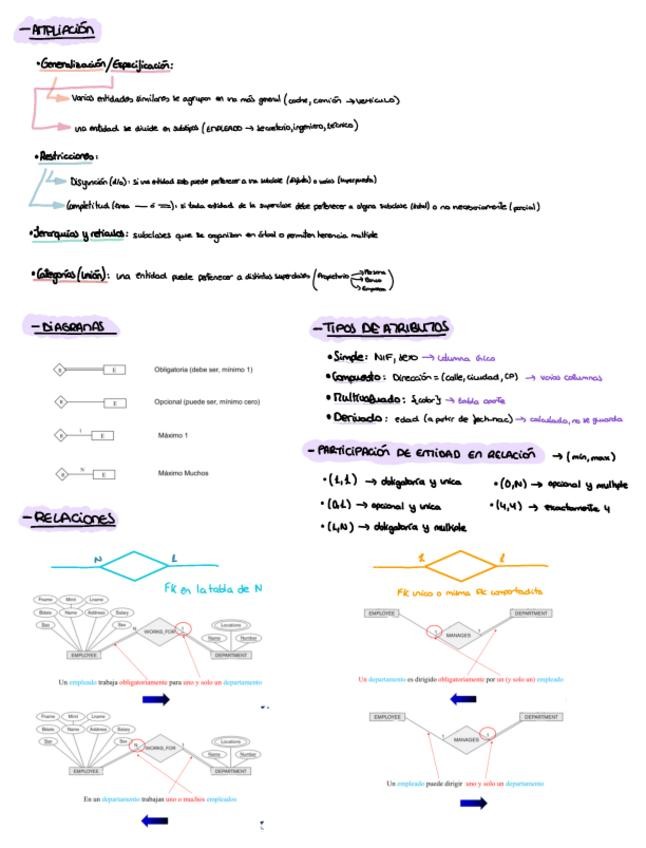 - AMPLIACIÓN
• Generalización/Especificación:
Varias entidades similares se agrupan en una más general (coche, camión → VEHICULO)
una entidad se divide en subtipos (EMPLEADO → secretario, ingeniero, técnico)
• Restricciones:
Disyunción (d/o): si una entidad solo puede pertenecer a una subclase (disjuta) o varias (superpuesta)
Completitud (línea — ó =): si toda entidad de la superclase debe pertenecer a alguna subclase (total) o no necesariamente (parcial)
• Jerarquías y retículas: subclases que se organizan en árbol o permiten herencia multiple
• Categorías (Unión): una entidad puede pertenecer a distintas superclases (Propietario → Persona
→ Banco
→ Empresa)
- DIAGRAMAS
R E Obligatoria (debe ser, mínimo 1)
R E Opcional (puede ser, mínimo cero)
R 1 E Máximo 1
R N E Máximo Muchos
- TIPOS DE ATRIBUTOS
• Simple: NIF, sexo → columna única
• Compuesto: Dirección = (calle, ciudad, CP) → varias columnas
• Multivaluado: {color} → tabla aparte
• Derivado: edad (a partir de fech-nac) → calculado, no se guarda
- PARTICIPACIÓN DE ENTIDAD EN RELACIÓN → (min, max)
• (1,1) → obligatoria y unica
• (0,N) → opcional y multiple
• (0,1) → opcional y unica
• (4,4) → exactamente 4
• (1,N) → obligatoria y multiple
- RELACIONES
N 1
FK en la tabla de N
Fname Minit Lname
Bdate Name Address Salary
Ssn Sex N WORKS_FOR 1 Locations
Name Number
EMPLOYEE DEPARTMENT
Un empleado trabaja obligatoriamente para uno y solo un departamento
Fname Minit Lname
Bdate Name Address Salary
Ssn Sex N WORKS_FOR 1 Locations
Name Number
EMPLOYEE DEPARTMENT
En un departamento trabajan uno o muchos empleados
1 1
FK unico o misma PK compartida
EMPLOYEE DEPARTMENT
1 MANAGES 1
Un departamento es dirigido obligatoriamente por un (y solo un) empleado
EMPLOYEE DEPARTMENT
1 MANAGES 1
Un empleado puede dirigir uno y solo un departamento